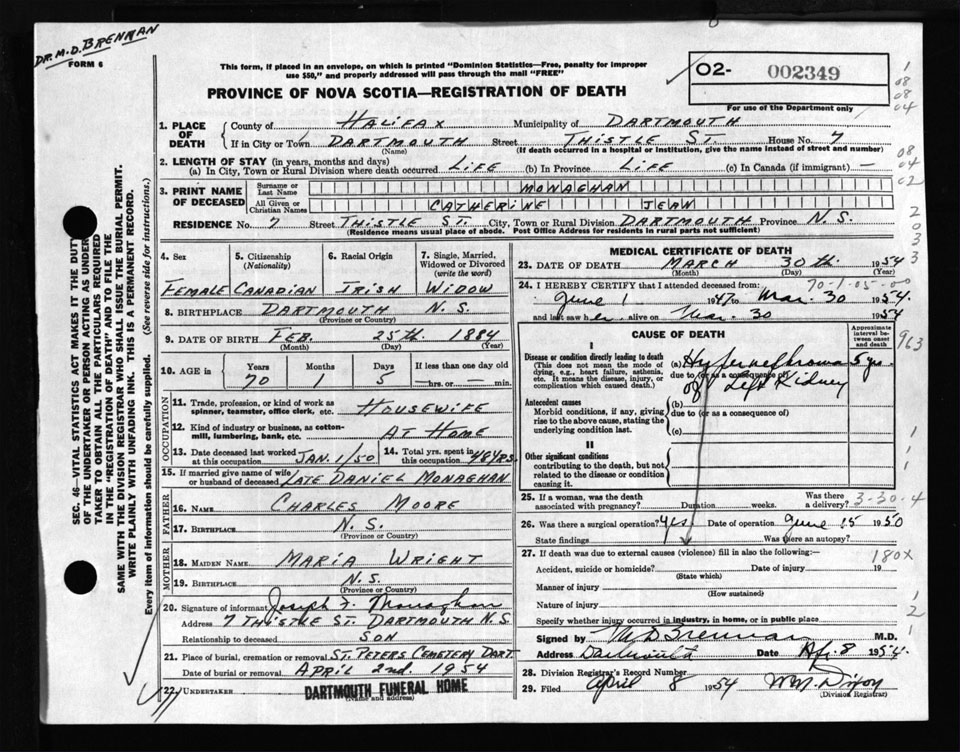 DR. M.D. BRENNAN
FORM 6
This form, if placed in an envelope, on which is printed "Dominion Statistics—Free, penalty for improper
use $50," and properly addressed will pass through the mail "FREE"
PROVINCE OF NOVA SCOTIA—REGISTRATION OF DEATH
02- 002349
For use of the Department only
1. PLACE OF DEATH County of HALIFAX Municipality of DARTMOUTH
If in City or Town DARTMOUTH Street THISTLE ST. House No. 7
(Name) (If death occurred in a hospital or institution, give the name instead of street and number)
2. LENGTH OF STAY (in years, months and days)
(a) In City, Town or Rural Division where death occurred LIFE (b) In Province LIFE (c) In Canada (if immigrant) —
3. PRINT NAME OF DECEASED Surname or Last Name MONAGHAN
All Given or Christian Names CATHERINE JEAN
RESIDENCE No. 7 Street THISTLE ST. City, Town or Rural Division DARTMOUTH Province N.S.
(Residence means usual place of abode. Post Office Address for residents in rural parts not sufficient)
4. Sex 5. Citizenship (Nationality) 6. Racial Origin 7. Single, Married, Widowed or Divorced (write the word)
FEMALE CANADIAN IRISH WIDOW
8. BIRTHPLACE DARTMOUTH N.S.
(Province or Country)
9. DATE OF BIRTH FEB. 25th 1884
(Month) (Day) (Year)
10. AGE in Years Months Days If less than one day old
70 1 5 hrs. or min.
OCCUPATION
11. Trade, profession, or kind of work as spinner, teamster, office clerk, etc. HOUSEWIFE
12. Kind of industry or business, as cotton-mill, lumbering, bank, etc. AT HOME
13. Date deceased last worked at this occupation JAN. 1/50 14. Total yrs. spent in this occupation 48 YRS.
15. If married give name of wife or husband of deceased LATE DANIEL MONAGHAN
FATHER
16. NAME CHARLES MOORE
17. BIRTHPLACE N.S.
(Province or Country)
MOTHER
18. MAIDEN NAME MARIA WRIGHT
19. BIRTHPLACE N.S.
(Province or Country)
20. Signature of informant Joseph F. Monaghan
Address 7 THISTLE ST. DARTMOUTH N.S.
Relationship to deceased SON
21. Place of burial, cremation or removal ST. PETERS CEMETERY DART.
Date of burial or removal APRIL 2nd. 1954
22. UNDERTAKER DARTMOUTH FUNERAL HOME
(Name and address)
MEDICAL CERTIFICATE OF DEATH
23. DATE OF DEATH MARCH 30th 1954
(Month) (Day) (Year)
70-1-05-00
24. I HEREBY CERTIFY that I attended deceased from:
June 1 1947 to Mar. 30 1954
and last saw her alive on Mar. 30 1954
CAUSE OF DEATH
Approximate interval between onset and death
I
Disease or condition directly leading to death
(This does not mean the mode of dying, e.g., heart failure, asthenia, etc. It means the disease, injury, or complication which caused death.)
(a) Hypernephroma 5 yrs.
due to (or as a consequence of)
of Left Kidney
Antecedent causes
Morbid conditions, if any, giving rise to the above cause, stating the underlying condition last.
(b)
due to (or as a consequence of)
(c)
II
Other significant conditions
contributing to the death, but not related to the disease or condition causing it.
25. If a woman, was the death associated with pregnancy? Duration weeks. Was there a delivery? 3-30-4
26. Was there a surgical operation? Yes Date of operation June 15 1950
State findings Was there an autopsy?
27. If death was due to external causes (violence) fill in also the following:—
180X
Accident, suicide or homicide? Date of injury 19
(State which)
Manner of injury
(How sustained)
Nature of injury
Specify whether injury occurred in industry, in home, or in public place
Signed by M D Brennan M.D.
Address Dartmouth Date Apr. 8 1954
28. Division Registrar's Record Number
29. Filed April 8 1954 W.M. Dixon
(Division Registrar)
SEC. 46—VITAL STATISTICS ACT MAKES IT THE DUTY
OF THE UNDERTAKER OR PERSON ACTING AS UNDER-
TAKER TO OBTAIN ALL THE PARTICULARS REQUIRED
IN THE "REGISTRATION OF DEATH" AND TO FILE THE
SAME WITH THE DIVISION REGISTRAR WHO SHALL ISSUE THE BURIAL PERMIT.
WRITE PLAINLY WITH UNFADING INK. THIS IS A PERMANENT RECORD.
Every item of information should be carefully supplied. (See reverse side for instructions.)
1
08
08
04
08
04
02
2
0
3
3
963
1
1
1
2